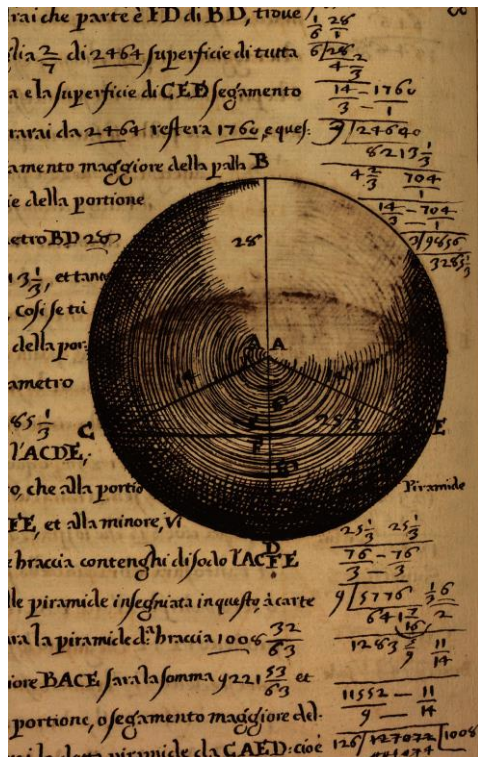 rai che parte è FD di BD, troue
glia 2/7 di 2464 superficie di tutta
a e la superficie di CED segamento
rarai da 2464 restera 1760, e ques:
amento maggiore della palla B
ie della portione
metro BD 28
13 1/3, et tanto
Cosi se tu
della por:
ametro
85 1/3
l'ACDE,
o, che alla portio
FE, et alla minore,
e braccia contenghi di sodo l'ACFE
lle piramide insegniata in questo, à carte
ara la piramide d.ª braccia 1008 32/63
iore BACE sara la somma 9221 53/63 et
portione, o segamento maggiore del-
la detta piramide da CAED: cioè
1/6 28/1
6/28
4 2/3
14/3 — 1760/1
3/24640
8213 1/3
4 2/3 704/1
14/3 — 704/1
3/9856
3285 1/3
28
A A
14 14
C E
F
D
F
Piramide
25 1/3 25 1/3
76/3 — 76/3
9/5776
1283 5/9 11/14
11552/9 — 11/14
126/127072/1008